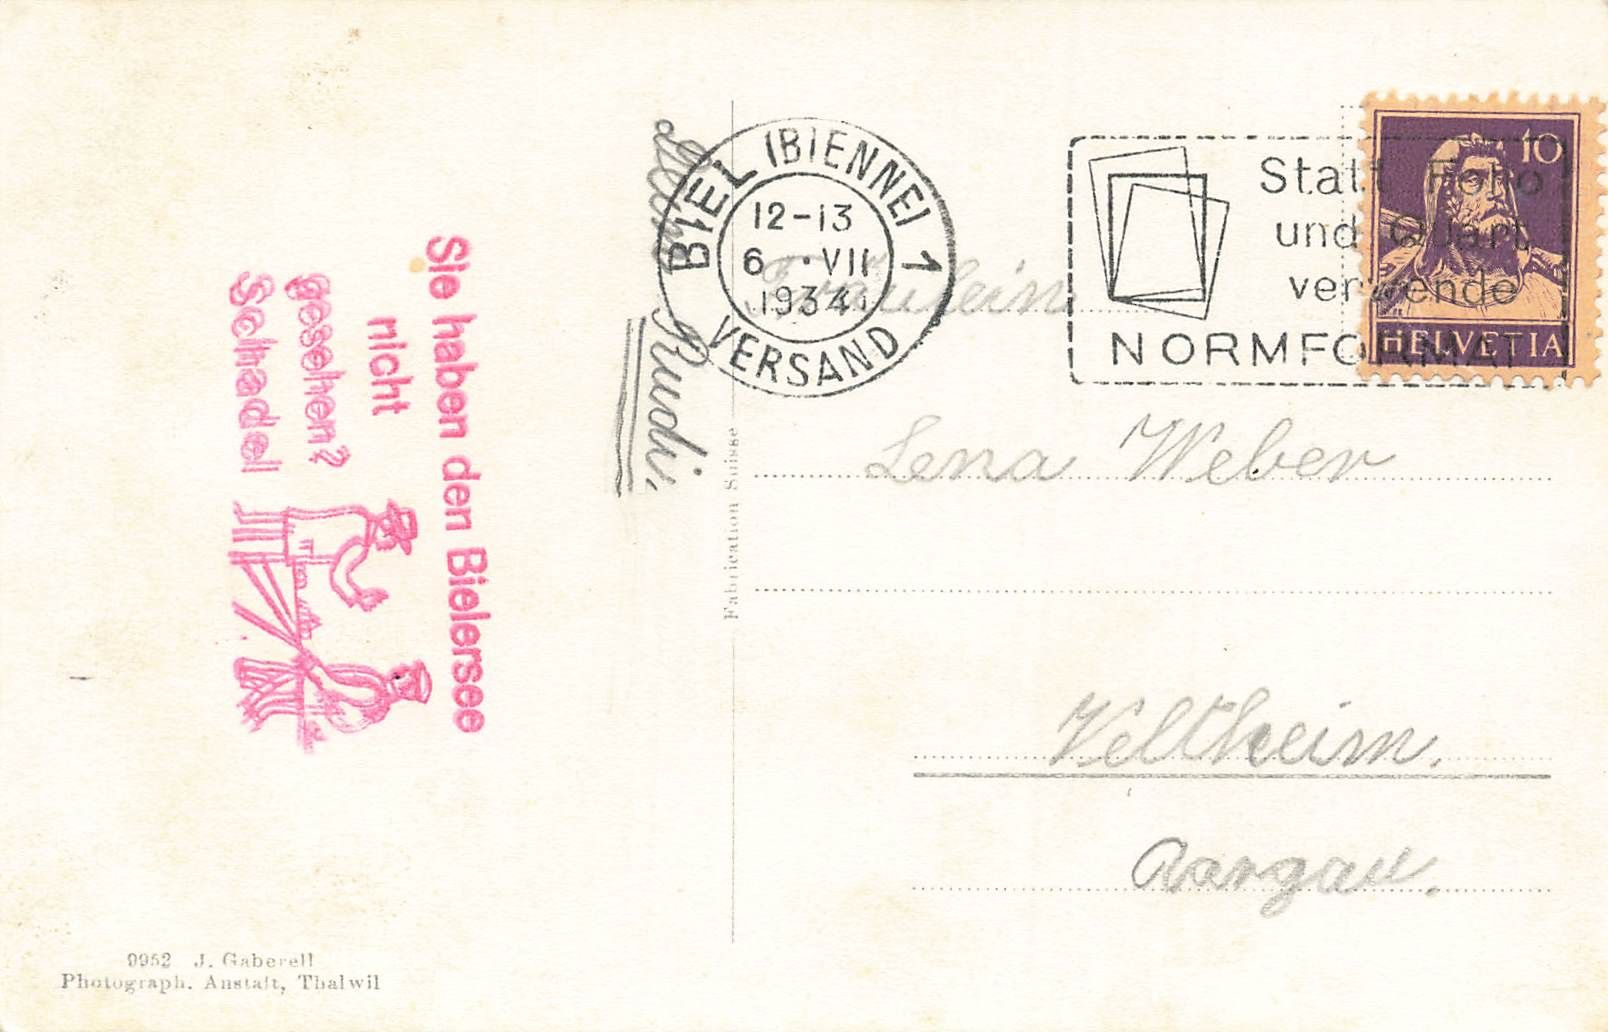 Sie haben den Bielersee
nicht
gesehen?
Schade!
Dein Ruedi.
9952 J. Gaberell
Photograph. Anstalt, Thalwil
Fabrication Suisse
BIEL (BIENNE) 1
12-13
6.VII
1934
VERSAND
Statt Folio
und Quart
verwende
NORMFORMAT
10
HELVETIA
Fräulein
Lena Weber
Veltheim.
Aargau.